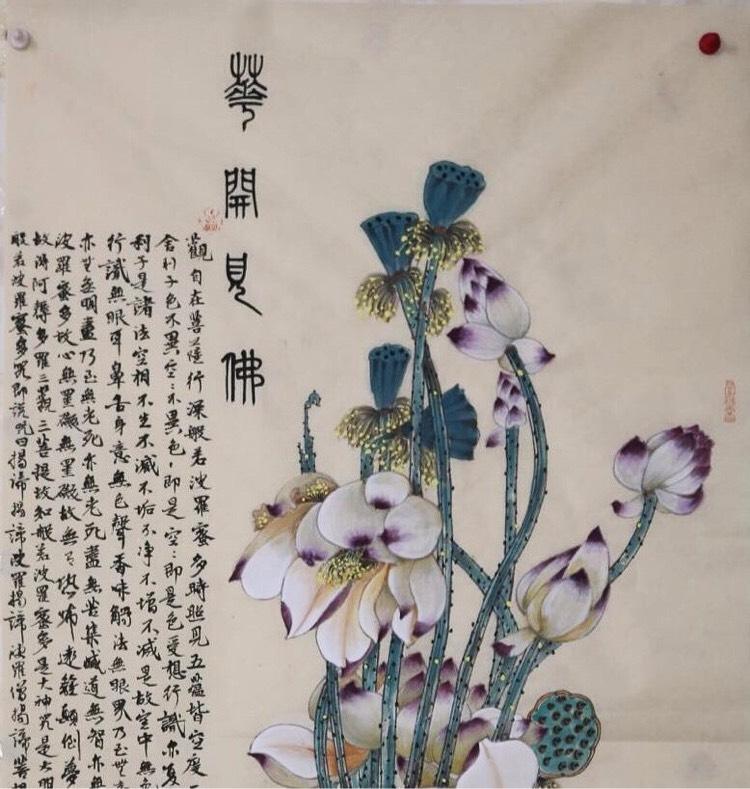 華開見佛
觀自在菩薩行深般若波羅蜜多時照見五蘊皆空度一
舍利子色不異空々不異色々即是空々即是色受想行識亦复
利子是諸法空相不生不滅不垢不净不增不减是故空中無色
行識無眼耳鼻舌身意無色聲香味觸法無眼界乃至無意
亦無無明盡乃至無老死亦無老死盡無苦集滅道無智亦無
波羅蜜多故心無罣礙無罣礙故無有恐怖遠離顛倒夢
故得阿耨多羅三藐三菩提故知般若波羅蜜多是大神咒是大明
般若波羅蜜多咒即說咒曰揭諦揭諦波羅揭諦波羅僧揭諦菩提